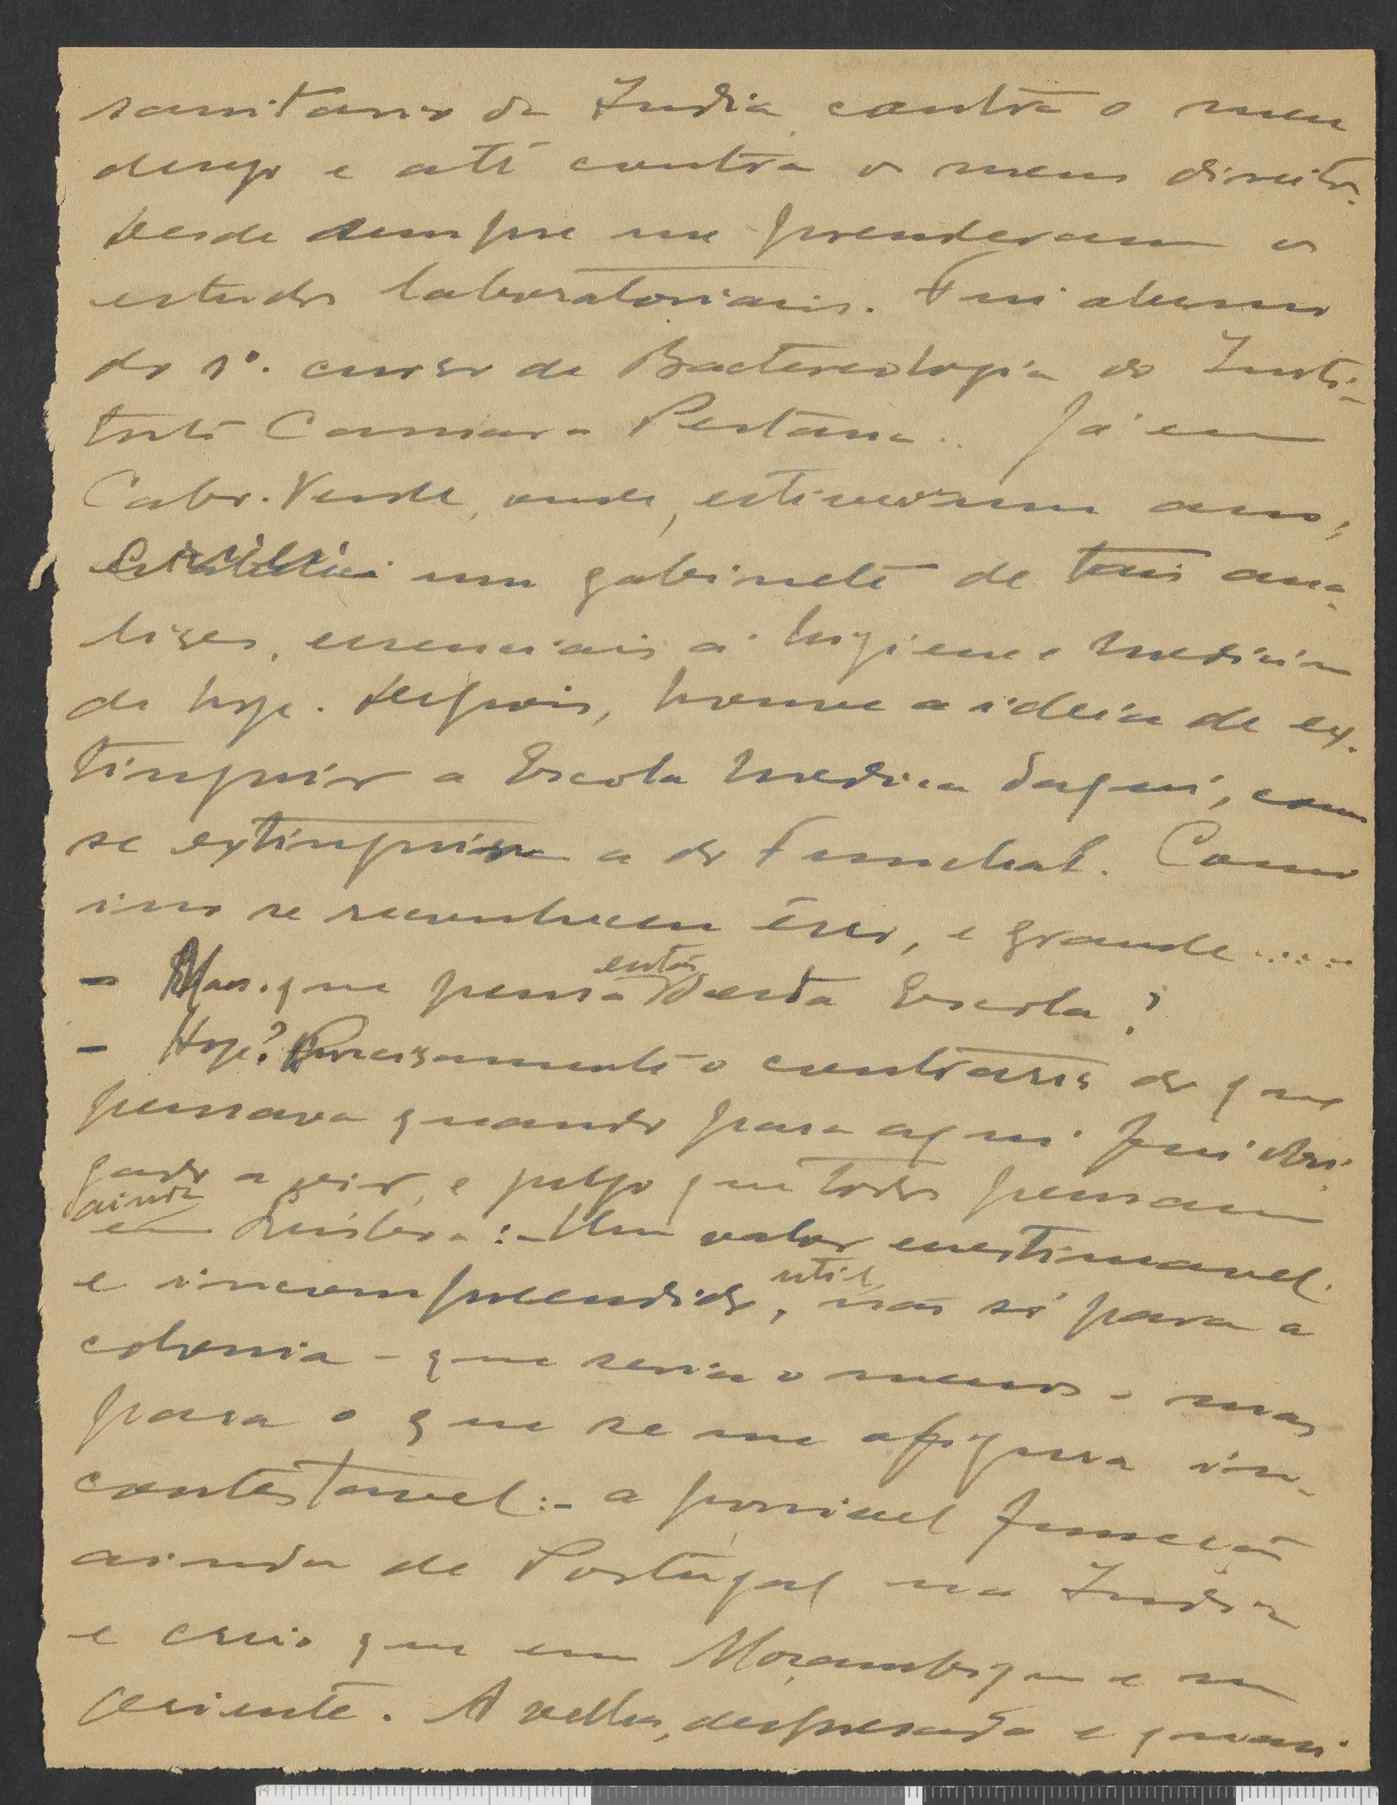 sanitario da India contra o meu
desejo e até contra os meus direitos.
Desde sempre me prenderam os
estudos laboratoriais. Fui alumno
do 1º. curso de Bactereologia do Insti-
tuto Camara Pestana.. Já em
Cabo-Verde, onde, estive um ano,
um gabinete de tais ana-
lises, essenciais á higiene e medicina
de hoje. Depois, houve a ideia de ex-
tinguir a Escola Medica daqui, como
se extinguira a do Funchal. Como
isso se reconheceu êrro, e grande.....
- Mas. que pensa então desta Escola?
- Hoje? Precisamente o contrario do que
pensava quando para aqui fui obri-
gado a vir, e julgo que todos pensam
ainda em Lisboa:- Um valor inestimavel
e incompreendido, util, não só para a
colonia - que seria o menos - mas
para o que se me afigura in-
contestavel:- a possivel funcção
ainda de Portugal na India
e creio que em Moçambique e no
oriente. A velha, despresada e quasi